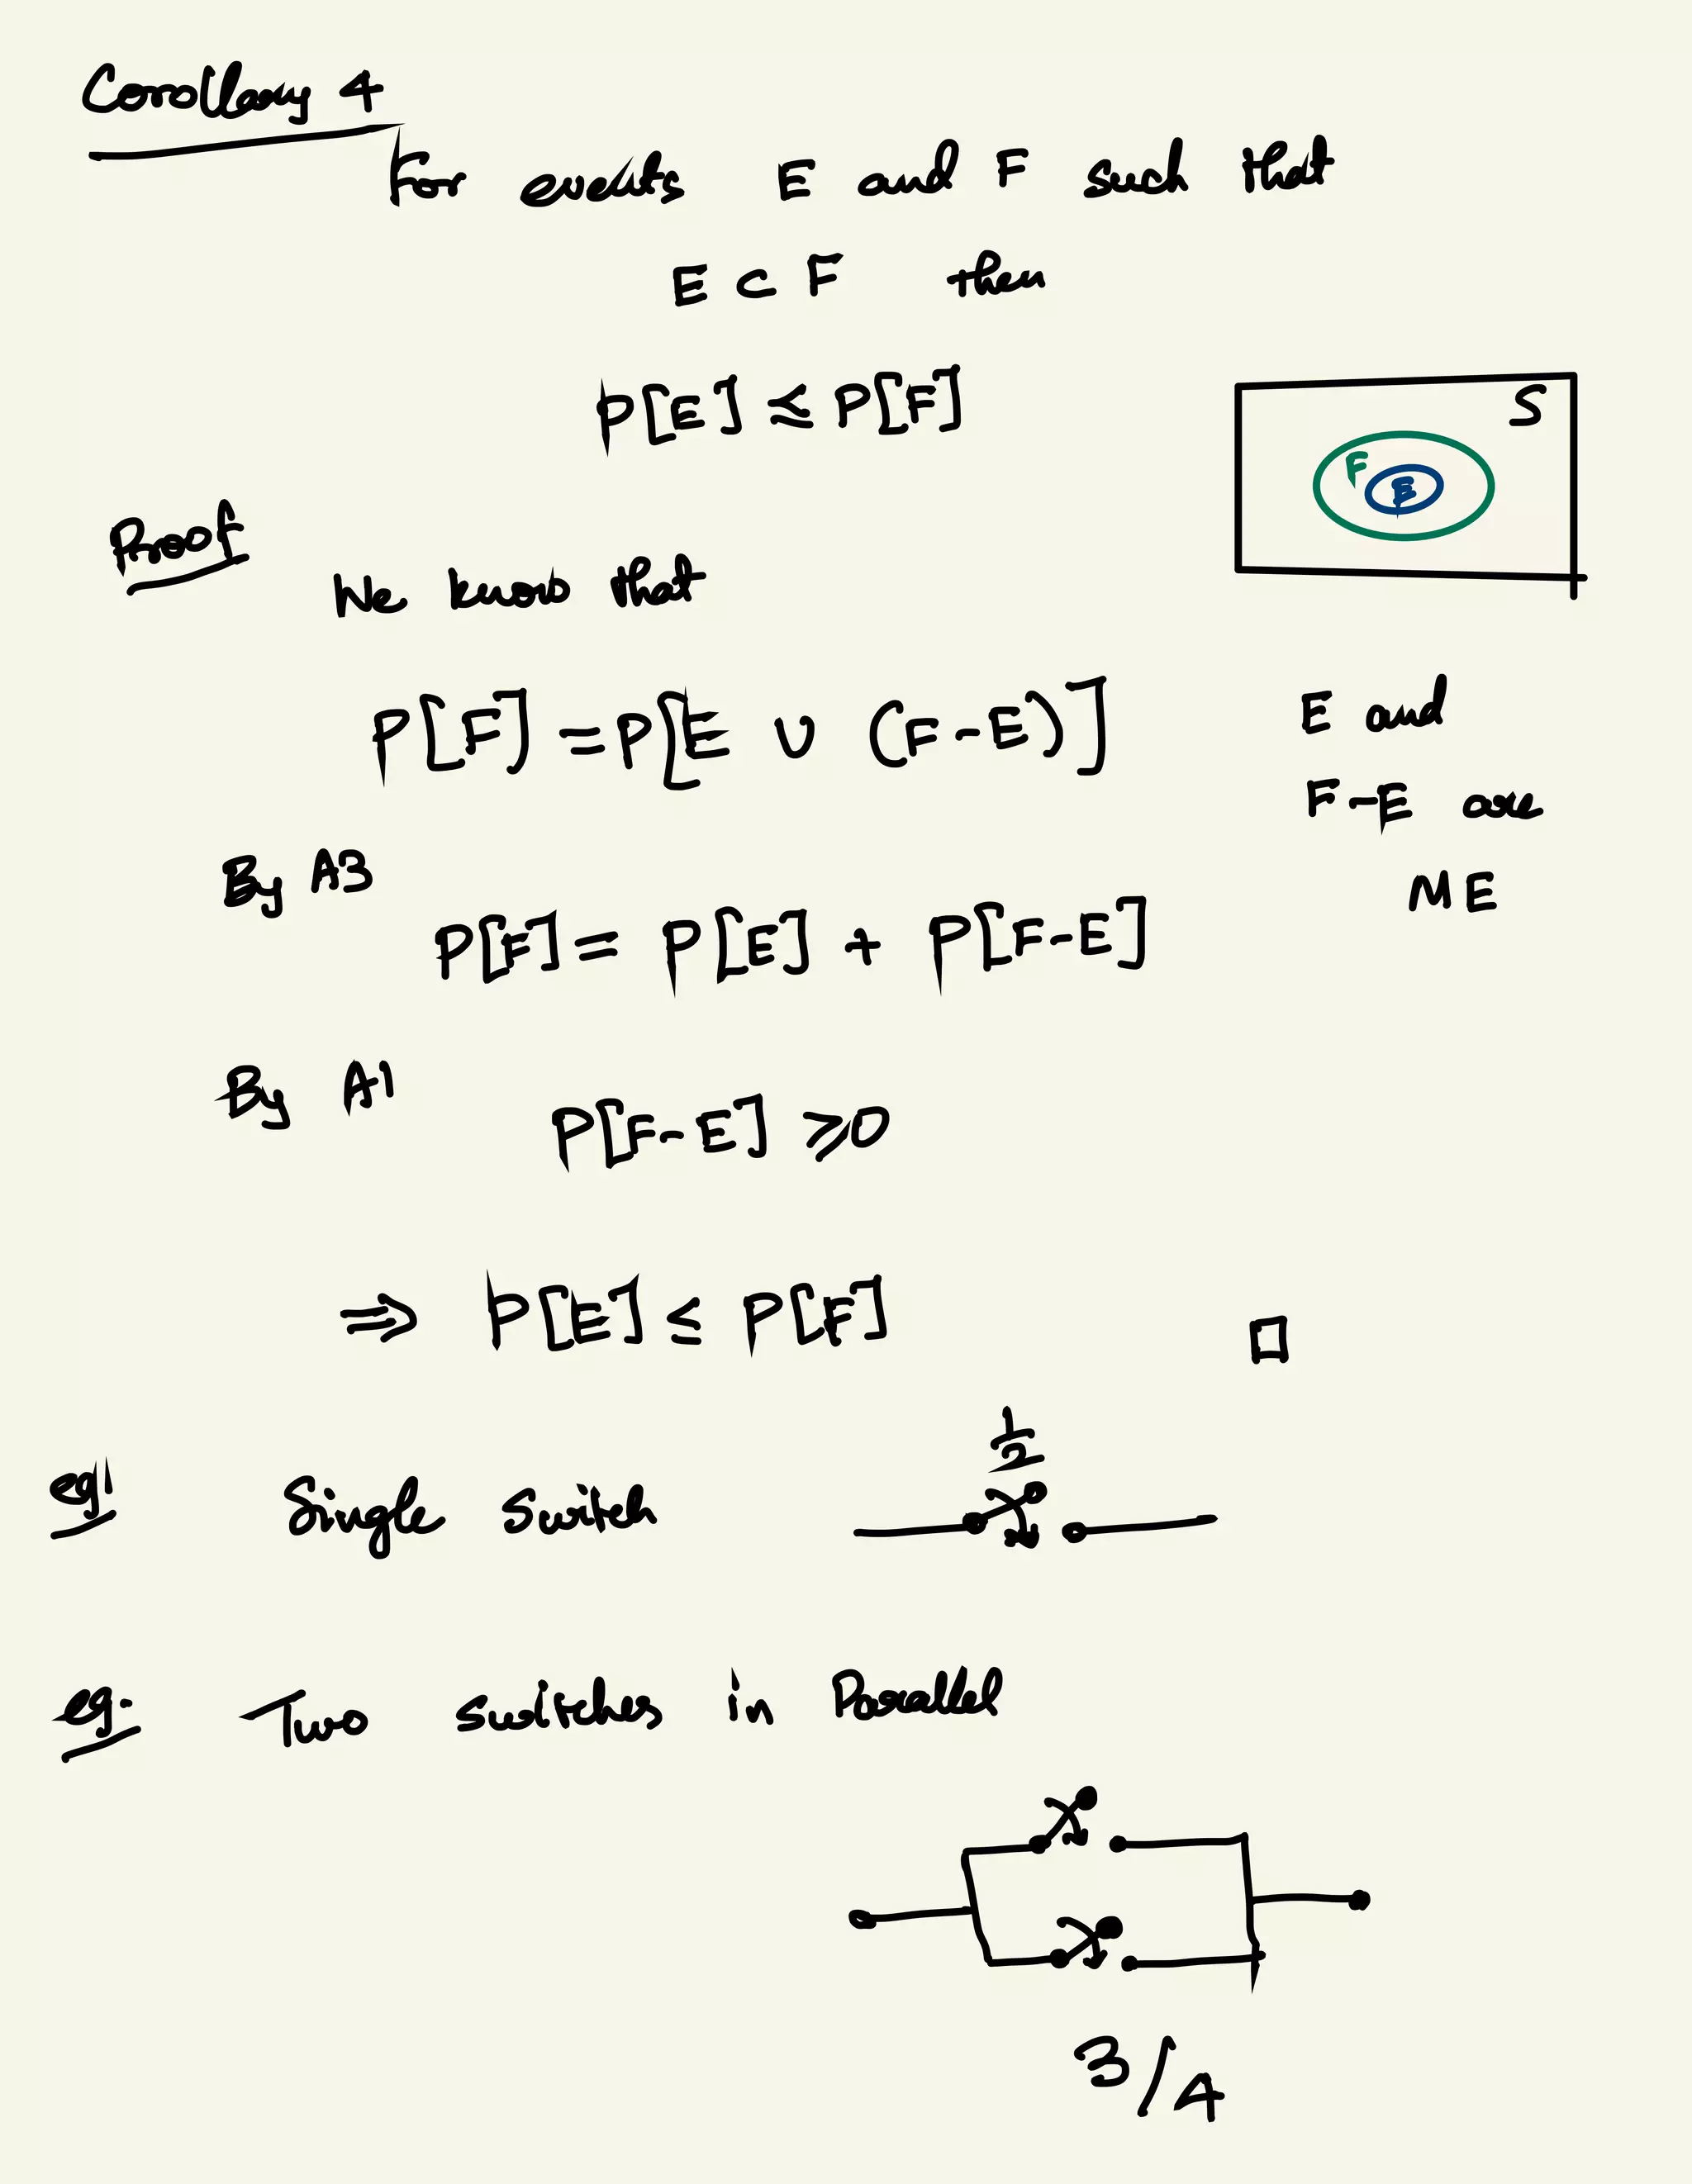 Corollary 4
For events E and F such that
E ⊂ F then
P[E] ≤ P[F]
S
F
E
Proof
We know that
P[F] = P[E ∪ (F-E)]
E and
F-E are
ME
By A3
P[F] = P[E] + P[F-E]
By A1
P[F-E] ≥ 0
⇒ P[E] ≤ P[F]
□
1/2
eg:
Single switch
eg:
Two switches in Parallel
3/4